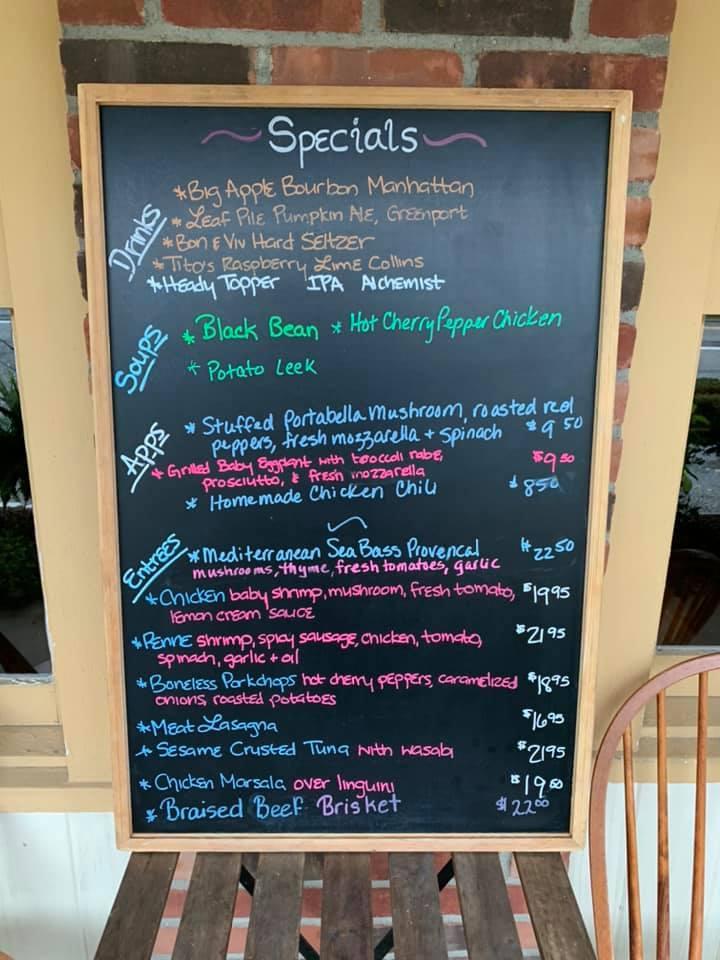 Specials
Drinks
*Big Apple Bourbon Manhattan
*Leaf Pile Pumpkin Ale, Greenport
*Bon & Viv Hard Seltzer
*Tito's Raspberry Lime Collins
*Heady Topper IPA Alchemist
Soups
* Black Bean * Hot Cherry Pepper Chicken
* Potato Leek
Apps
* Stuffed Portabella Mushroom, roasted red
peppers, fresh mozzarella + spinach $9 50
* Grilled Baby Eggplant with broccoli rabe, $9 50
prosciutto, & fresh mozzarella
* Homemade Chicken Chili $8 50
Entrees
*Mediterranean Sea Bass Provencal $22 50
mushrooms, thyme, fresh tomatoes, garlic
*Chicken baby shrimp, mushroom, fresh tomato, $19 95
lemon cream sauce
*Penne shrimp, spicy sausage, chicken, tomato, $21 95
spinach, garlic + oil
*Boneless Porkchops hot cherry peppers, caramelized $18 95
onions, roasted potatoes
*Meat Lasagna $16 95
* Sesame Crusted Tuna with wasabi $21 95
* Chicken Marsala over linguini $19 50
* Braised Beef Brisket $22 00